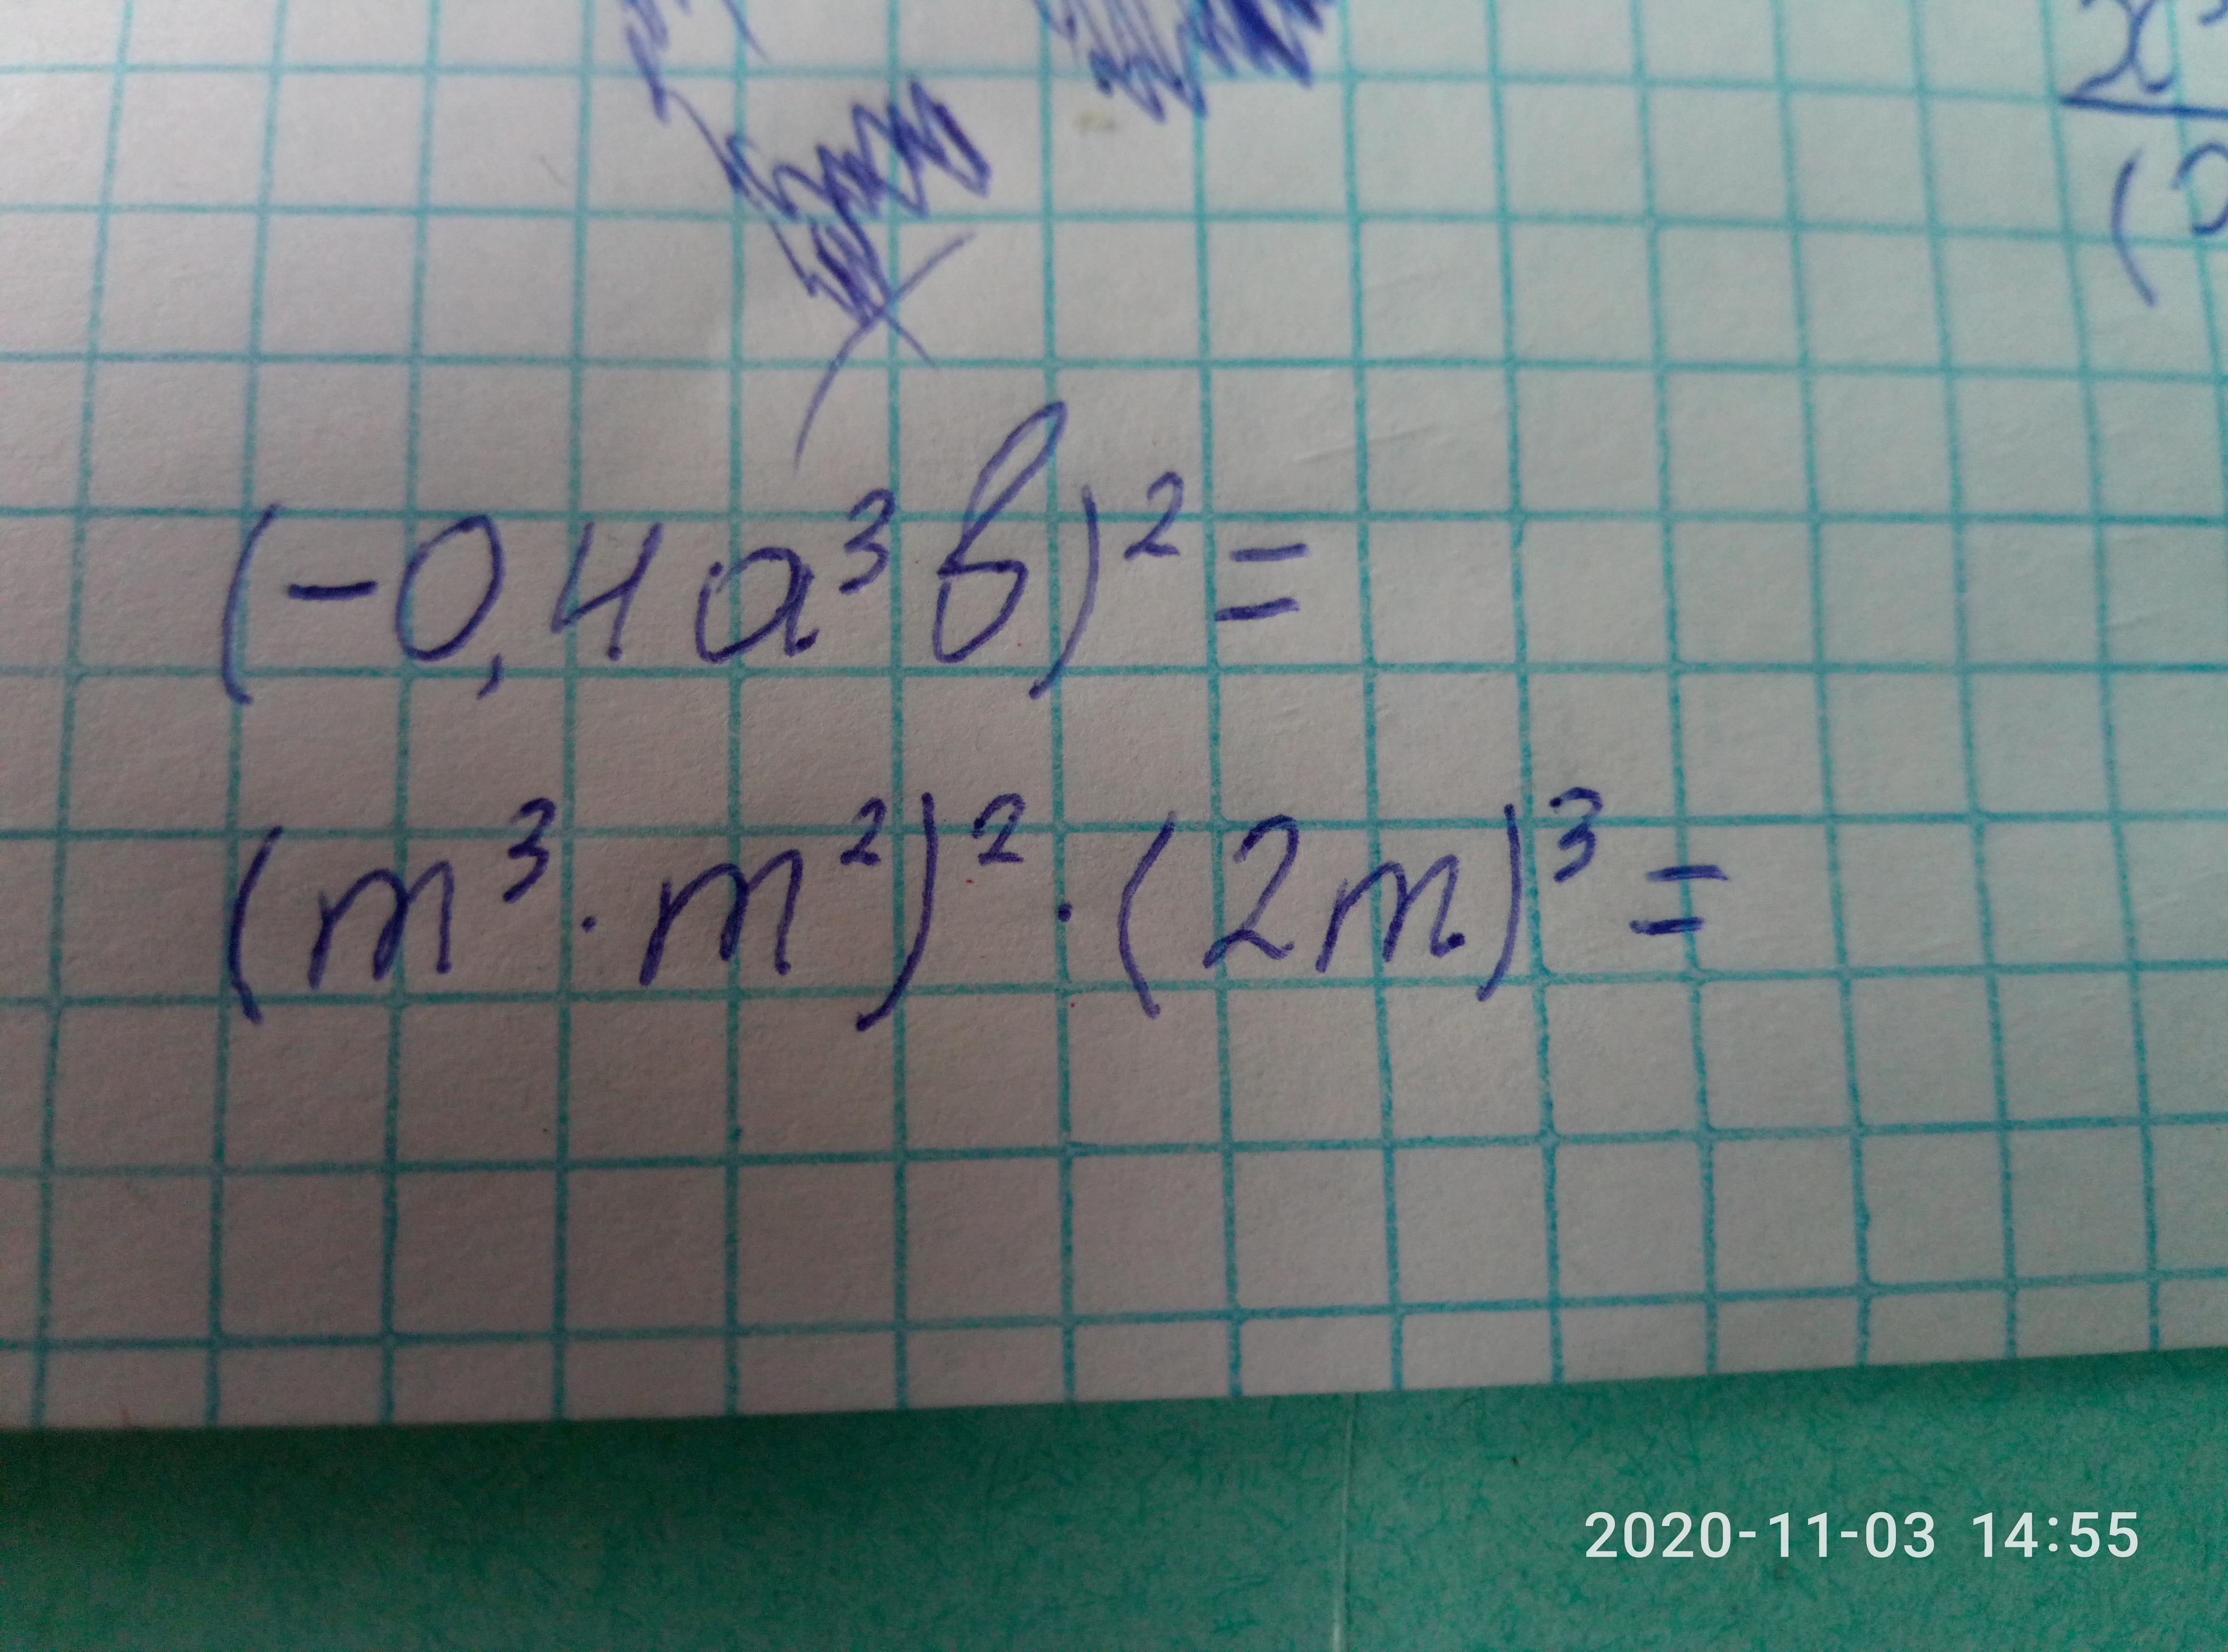 x³
(-0,4a³b)²=
(m³·m²)²·(2m)³=
2020-11-03 14:55